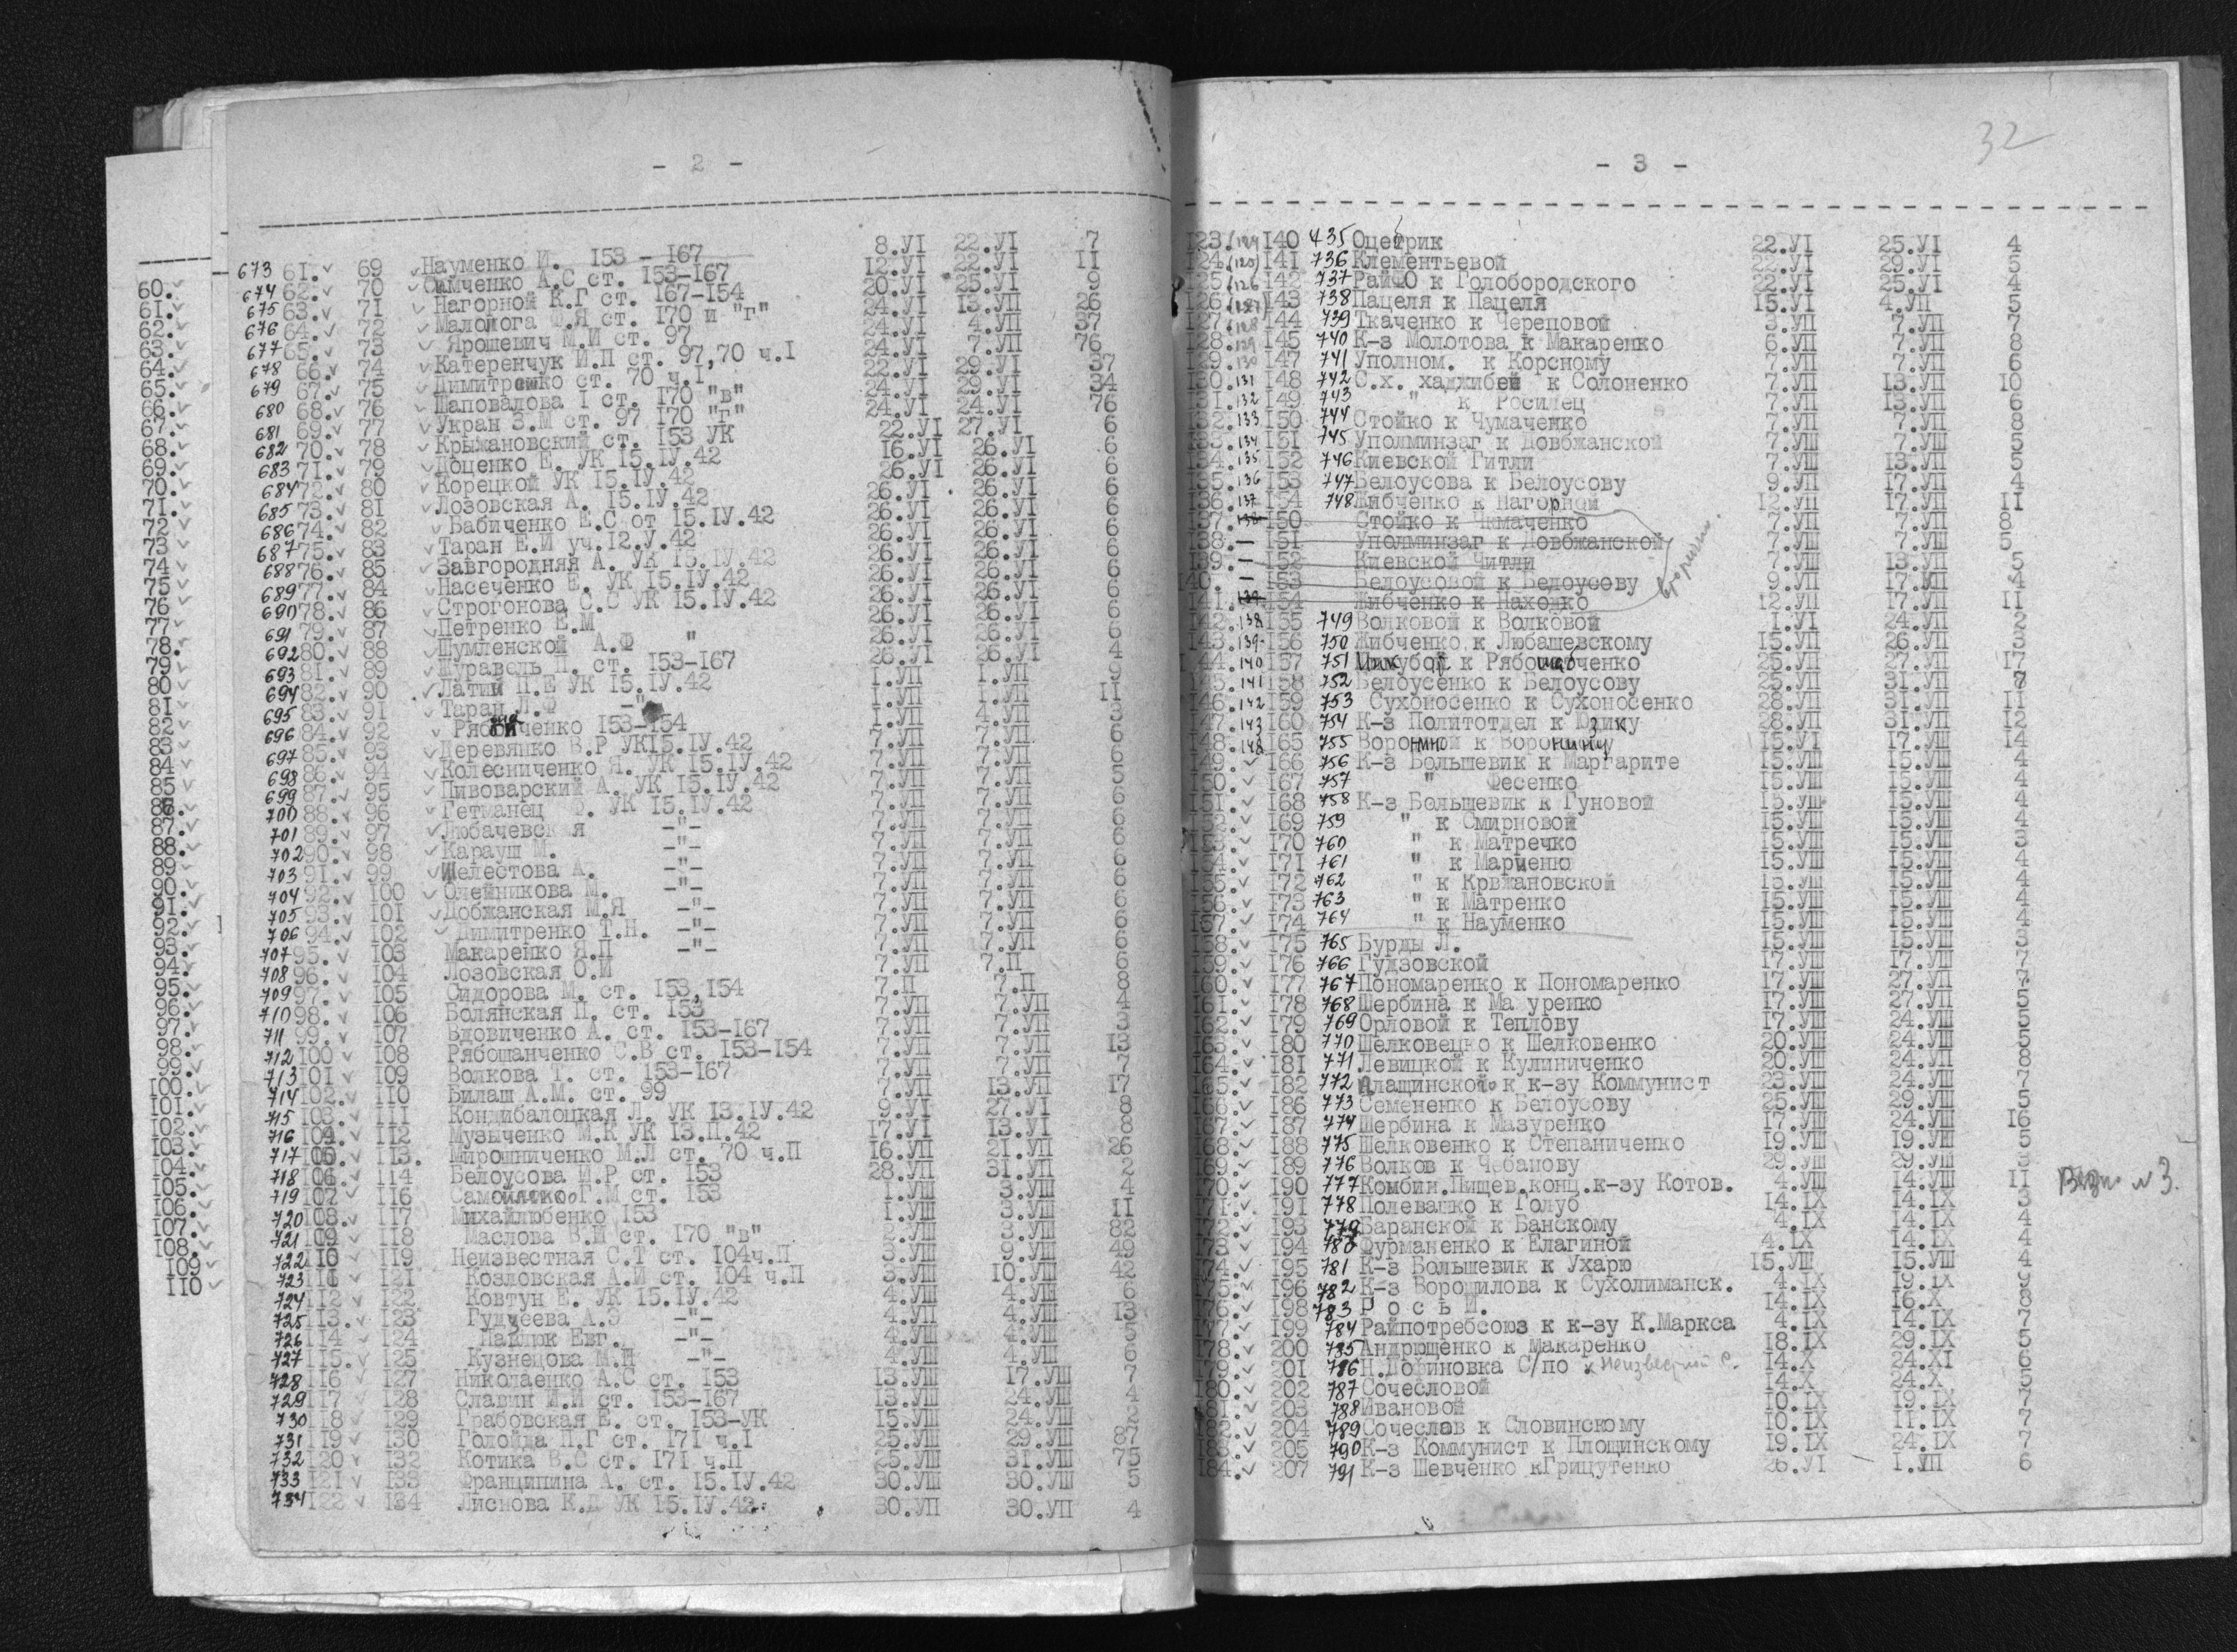 - 2 -
673 61. 69 Науменко И. 153 - 167 8.УІ 22.УІ 7
674 62. 70 Симченко А.С ст. 153-167 12.УІ 22.УІ 11
675 63. 71 Нагорной К.Г ст. 167-154 20.УІ 25.УІ 9
676 64. 72 Малолога Ф.Я ст. 170 и "г" 24.УІ 13.УП 26
677 65. 73 Ярошевич М.И ст. 97 24.УІ 4.УП 37
678 66. 74 Катеренчук И.П ст. 97,70 ч.І 24.УІ 7.УП 76
679 67. 75 Димитренко ст. 70 ч.І 22.УІ 29.УІ 37
680 68. 76 Шаповалова І ст. 170 "в" 24.УІ 29.УІ 34
681 69. 77 Укран З.М ст. 97 170 "г" 24.УІ 24.УІ 76
682 70. 78 Крыжановский ст. 153 УК 22.УІ 27.УІ 6
683 71. 79 Доценко Е. УК 15.ІУ.42 16.УІ 26.УІ 6
684 72. 80 Корецкой УК 15.ІУ.42 26.УІ 26.УІ 6
685 73. 81 Лозовская А. 15.ІУ.42 26.УІ 26.УІ 6
686 74. 82 Бабиченко Е.С от 15.ІУ.42 26.УІ 26.УІ 6
687 75. 83 Таран Е.И уч.12.У.42 26.УІ 26.УІ 6
688 76. 85 Завгородняя А. УК 15.ІУ.42 26.УІ 26.УІ 6
689 77. 84 Насеченко Е. УК 15.ІУ.42 26.УІ 26.УІ 6
690 78. 86 Строгонова С.С УК 15.ІУ.42 26.УІ 26.УІ 6
691 79. 87 Петренко Е.М 26.УІ 26.УІ 6
692 80. 88 Шумленской А.Ф " 26.УІ 26.УІ 6
693 81. 89 Журавель П. ст. 153-167 26.УІ 26.УІ 4
694 82. 90 Латий П.Е УК 15.ІУ.42 1.УП 1.УП 9
695 83. 91 Таран Л.Ф -"- 1.УП 1.УП 11
696 84. 92 Рябошаченко 153-154 1.УП 4.УП
697 85. 93 Деревянко В.Р УК15.ІУ.42 7.УП 7.УП 6
698 86. 94 Колесниченко Я. УК 15.ІУ.42 7.УП 7.УП 6
699 87. 95 Пивоварский А. УК 15.ІУ.42 7.УП 7.УП 5
700 88. 96 Гетманец Ф. УК 15.ІУ.42 7.УП 7.УП 6
701 89. 97 Любачевская -"- 7.УП 7.УП 6
702 90. 98 Карауш М. -"- 7.УП 7.УП 6
703 91. 99 Шелестова А. -"- 7.УП 7.УП 6
704 92. 100 Олейникова М. -"- 7.УП 7.УП 6
705 93. 101 Добжанская М.Я -"- 7.УП 7.УП 6
706 94. 102 Димитренко Т.Н. -"- 7.УП 7.УП 6
707 95. 103 Макаренко Я.П -"- 7.УП 7.УП 6
708 96. 104 Лозовская О.И 7.УП 7.П 6
709 97. 105 Сидорова М. ст. 153,154 7.П 7.П 8
710 98. 106 Болянская П. ст. 153 7.УП 7.УП 4
711 99. 107 Вдовиченко А. ст. 153-167 7.УП 7.УП
712 100 108 Рябошанченко С.В ст. 153-154 7.УП 7.УП 13
713 101 109 Волкова Т. ст. 153-167 7.УП 7.УП 7
714 102. 110 Билаш А.М. ст. 99 7.УП 13.УП 17
715 103. 111 Кондибалоцкая Л. УК 13.ІУ.42 9.УІ 27.УІ 8
716 104. 112 Музыченко М.К УК 13.П.42 17.УІ 13.УІ 8
717 105. 113. Мирошниченко М.Л ст. 70 ч.П 16.УП 21.УП 26
718 106. 114 Белоусова И.Р ст. 153 28.УП 31.УП 2
719 107 116 Самойленко Г.М ст. 153 1.УШ 3.УШ 4
720 108. 117 Михайлюбенко 153 1.УШ 3.УШ 11
721 109 118 Маслова В.Ш ст. 170 "в" 2.УШ 3.УШ 82
722 110 119 Неизвестная С.Т ст. 104ч.П 3.УШ 9.УШ 49
723 111 121 Козловская А.И ст. 104 ч.П 3.УШ 10.УШ 42
724 112 122 Ковтун Е. УК 15.ІУ.42 4.УШ 4.УШ 6
725 113. 123 Гудзеева А.Э -"- 4.УП 4.УШ 13
726 114 124 Павлюк Евг. -"- 4.УШ 4.УШ
727 115. 125 Кузнецова М.Н -"- 4.УШ 4.УШ 6
728 116 127 Николаенко А.С ст. 153 13.УШ 17.УШ 7
729 117 128 Славин И.И ст. 153-167 13.УШ 24.УШ 4
730 118 129 Грабовская Е. ст. 153-УК 15.УШ 24.УШ
731 119 130 Голойда П.Г ст. 171 ч.І 25.УШ 29.УШ 87
732 120 132 Котика В.С ст. 171 ч.П 25.УШ 31.УШ 75
733 121 133 Францишина А. ст. 15.ІУ.42 30.УШ 30.УШ 5
734 122 134 Лиснова К.Д УК 15.ІУ.42 30.УП 30.УП 4
60.
61.
62.
63.
64.
65.
66.
67.
68.
69.
70.
71.
72
73
74
75
76
77
78.
79
80
81
82
83
84
85
86.
87.
88.
89
90.
91.
92.
93.
94.
95.
96.
97.
98.
99.
100.
101.
102.
103.
104.
105.
106.
107.
108.
109
110
- 3 -
32
123. 124 140 435 Оцебрик 22.УІ 25.УІ 4
124. (125) 141 736 Клементьевой 22.УІ 29.УІ 5
125 (126 142 737 РайФО к Голобородского 22.УІ 25.УІ 4
126 (127) 143 738 Пацеля к Пацеля 15.УІ 4.УП 5
127 (128 144 739 Ткаченко к Череповой 3.УП 7.УП 7
128. 129 145 740 К-з Молотова к Макаренко 6.УП 7.УП 8
129. 130 147 741 Уполном. к Корсному 7.УП 7.УП 6
130. 131 148 742 С.х. хаджибей к Солоненко 7.УП 13.УП 10
131. 132 149 743 " к Росилец 7.УП 13.УП 6
132. 133 150 744 Стойко к Чумаченко 7.УП 7.УП 8
133. 134 151 745 Уполминзаг к Довбжанской 7.УШ 7.УШ 5
134. 135 152 746 Киевской Гитли 7.УШ 13.УП 5
135. 136 153 747 Белоусова к Белоусову 9.УП 17.УП 4
136. 137 154 748 Жибченко к Нагорной 12.УП 17.УП 11
137. 138 150 Стойко к Чумаченко 7.УП 7.УП 8
138. - 151 Уполминзаг к Довбжанской 7.УШ 7.УШ 5
139. - 152 Киевской Читли 7.УШ 13.УП 5
140. - 153 Белоусовой к Белоусову 9.УП 17.УП 4
141. 154 Жибченко к Находко 12.УП 17.УП 11
142. 138 155 749 Волковой к Волковой 1.УІ 24.УП 2
143. 139 156 750 Жибченко к Любашевскому 15.УП 26.УП 3
144. 140 157 751 к Рябошабченко 25.УП 27.УП 17
145. 141 158 752 Белоусенко к Белоусову 25.УП 31.УП 7
146. 142 159 753 Сухоносенко к Сухоносенко 28.УП 31.УП 11
147. 143 160 754 К-з Политотдел к Юзику 28.УП 31.УП 12
148. 148 165 755 Ворониной к Воронину 15.УІ 17.УШ 14
149. 166 756 К-з Большевик к Маргарите 15.УШ 15.УШ 4
150. 167 757 " Фесенко 15.УШ 15.УШ 4
151. 168 758 К-з Большевик к Гуновой 15.УШ 15.УШ 4
152. 169 759 " к Смирновой 15.УШ 15.УШ 4
153. 170 760 " к Матречко 15.УШ 15.УШ 3
154. 171 761 " к Мариенко 15.УШ 15.УШ 4
155. 172 762 " к Крвжановской 15.УШ 15.УШ 4
156. 173 763 " к Матренко 15.УШ 15.УШ 4
157. 174 764 " к Науменко 15.УШ 15.УШ 4
158. 175 765 Бурды Л. 15.УШ 15.УШ 3
159. 176 766 Гудзовской 17.УШ 17.УШ 7
160. 177 767 Пономаренко к Пономаренко 17.УШ 27.УП 7
161. 178 768 Шербина к Ма уренко 17.УШ 27.УП 5
162. 179 769 Орловой к Теплову 17.УШ 24.УШ 5
163. 180 770 Шелковецко к Шелковенко 20.УШ 24.УШ 5
164. 181 771 Левицкой к Кулиниченко 20.УШ 24.УП 8
165. 182 772 Плащинской к к-зу Коммунист 23.УШ 24.УШ 7
166. 186 773 Семененко к Белоусову 25.УШ 29.УШ 5
167. 187 774 Шербина к Мазуренко 17.УШ 24.УШ 16
168. 188 775 Шелковенко к Степаниченко 19.УШ 19.УШ 5
169. 189 776 Волков к Чебанову 29.УШ 29.УШ 3
170. 190 777 Комбин.Пищев.конц.к-зу Котов. 4.УШ 14.УШ 11
171. 191 778 Полевашко к Голуб 14.ІХ 14.ІХ 3
172. 193 779 Баранской к Банскому 4.ІХ 14.ІХ 4
173. 194 780 Фурманенко к Елагиной 4.ІХ 14.ІХ 4
174. 195 781 К-з Большевик к Ухарю 15.УШ 15.УШ 4
175. 196 782 К-з Ворошилова к Сухолиманск. 4.ІХ 19.ІХ 9
176. 198 783 Р о с ь И. 14.ІХ 16.Х 8
177. 199 784 Райпотребсоюз к к-зу К.Маркса 4.ІХ 14.ІХ 7
178. 200 785 Андрющенко к Макаренко 18.ІХ 29.ІХ 5
179. 201 786 Н.Дофиновка С/по к Неизвестной С. 14.Х 24.ХІ 6
180. 202 787 Сочесловой 14.Х 24.Х 5
181. 203 788 Ивановой 10.ІХ 19.ІХ 7
182. 204 789 Сочеслав к Словинскому 10.ІХ 11.ІХ 7
183. 205 790 К-з Коммунист к Площинскому 19.ІХ 24.ІХ 7
184. 207 791 К-з Шевченко кГрицутенко 26.УІ 1.УП 6